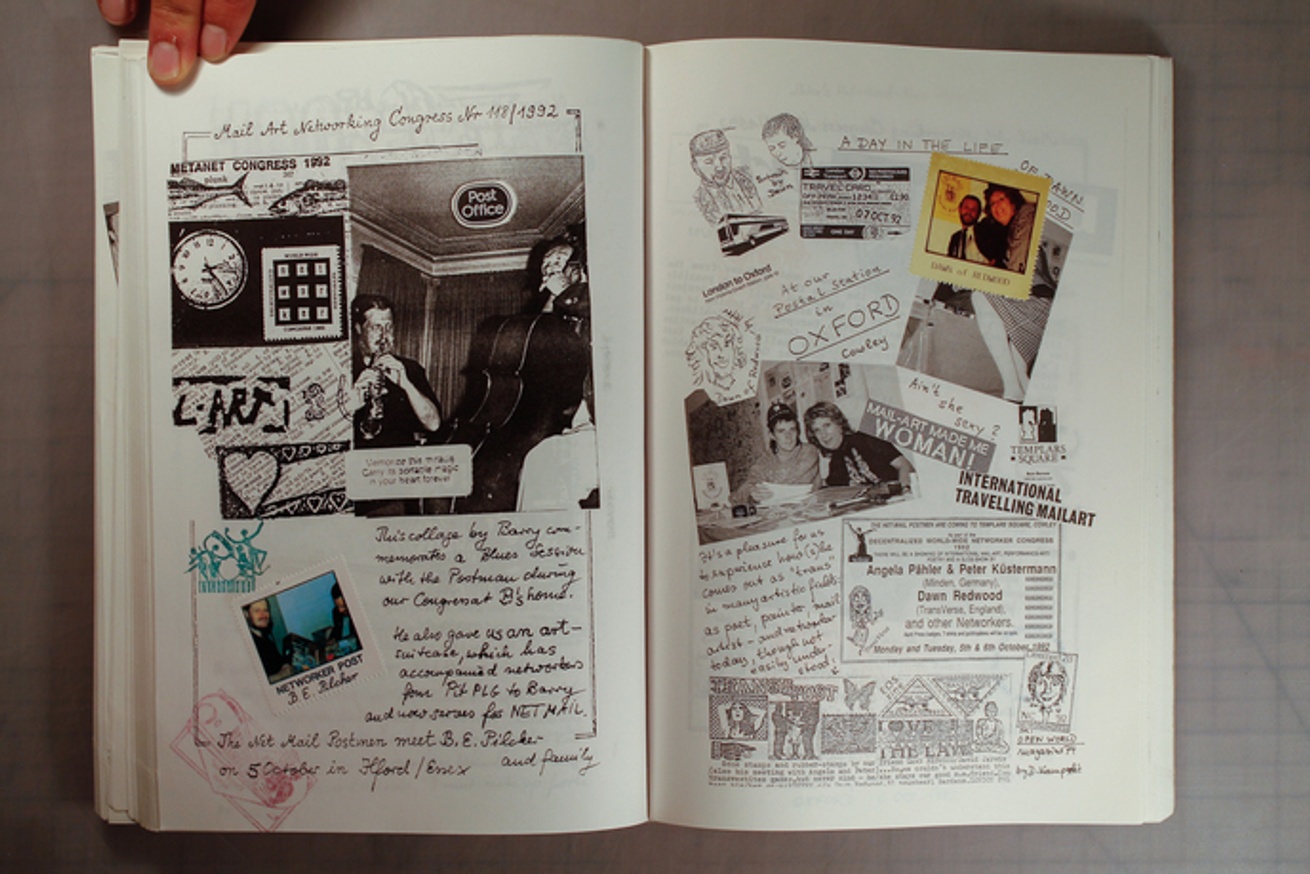 Mail Art Networking Congress Nr 118/1992
METANET CONGRESS 1992
plunk
Post
Office
WORLD WIDE
L-ART
Memorize this miracle
Carry its portable magic
in your heart forever
This collage by Barry com-
memorates a Blues Session
with the Postman during
our Congress at B's home.
He also gave us an art-
suitcase, which has
accompanied networkers
from Pit PLG to Barry
and now serves for NET MAIL.
NETWORKER POST
B.E. Pilcher
The Net Mail Postmen meet B.E. Pilcher
and family
on 5 October in Ilford / Essex
A DAY IN THE LIFE
OF DAWN
by
Dawn
TRAVELCARD
07 OCT 92
ONE DAY
DAWN of REDWOOD
London to Oxford
At our
Postal Station
in
OXFORD
Cowley
Dawn of Redwood
Ain't she
sexy?
MAIL-ART MADE ME
WOMAN!
TEMPLARS
SQUARE
INTERNATIONAL
TRAVELLING MAILART
THE NETMAIL POSTMEN ARE COMING TO TEMPLARS SQUARE, COWLEY
As part of the
DECENTRALIZED WORLD-WIDE NETWORKER CONGRESS
1992
Angela Pähler & Peter Küstermann
(Minden, Germany),
Dawn Redwood
(TransVerse, England),
and other Networkers.
Monday and Tuesday, 5th & 6th October, 1992
It's a pleasure for us
to experience how (s)he
comes out as "trans"
in many artistic fields:
as poet, painter, mail
artist - and networker
today, though not
easily under-
stood!
LOVE
OPEN WORLD